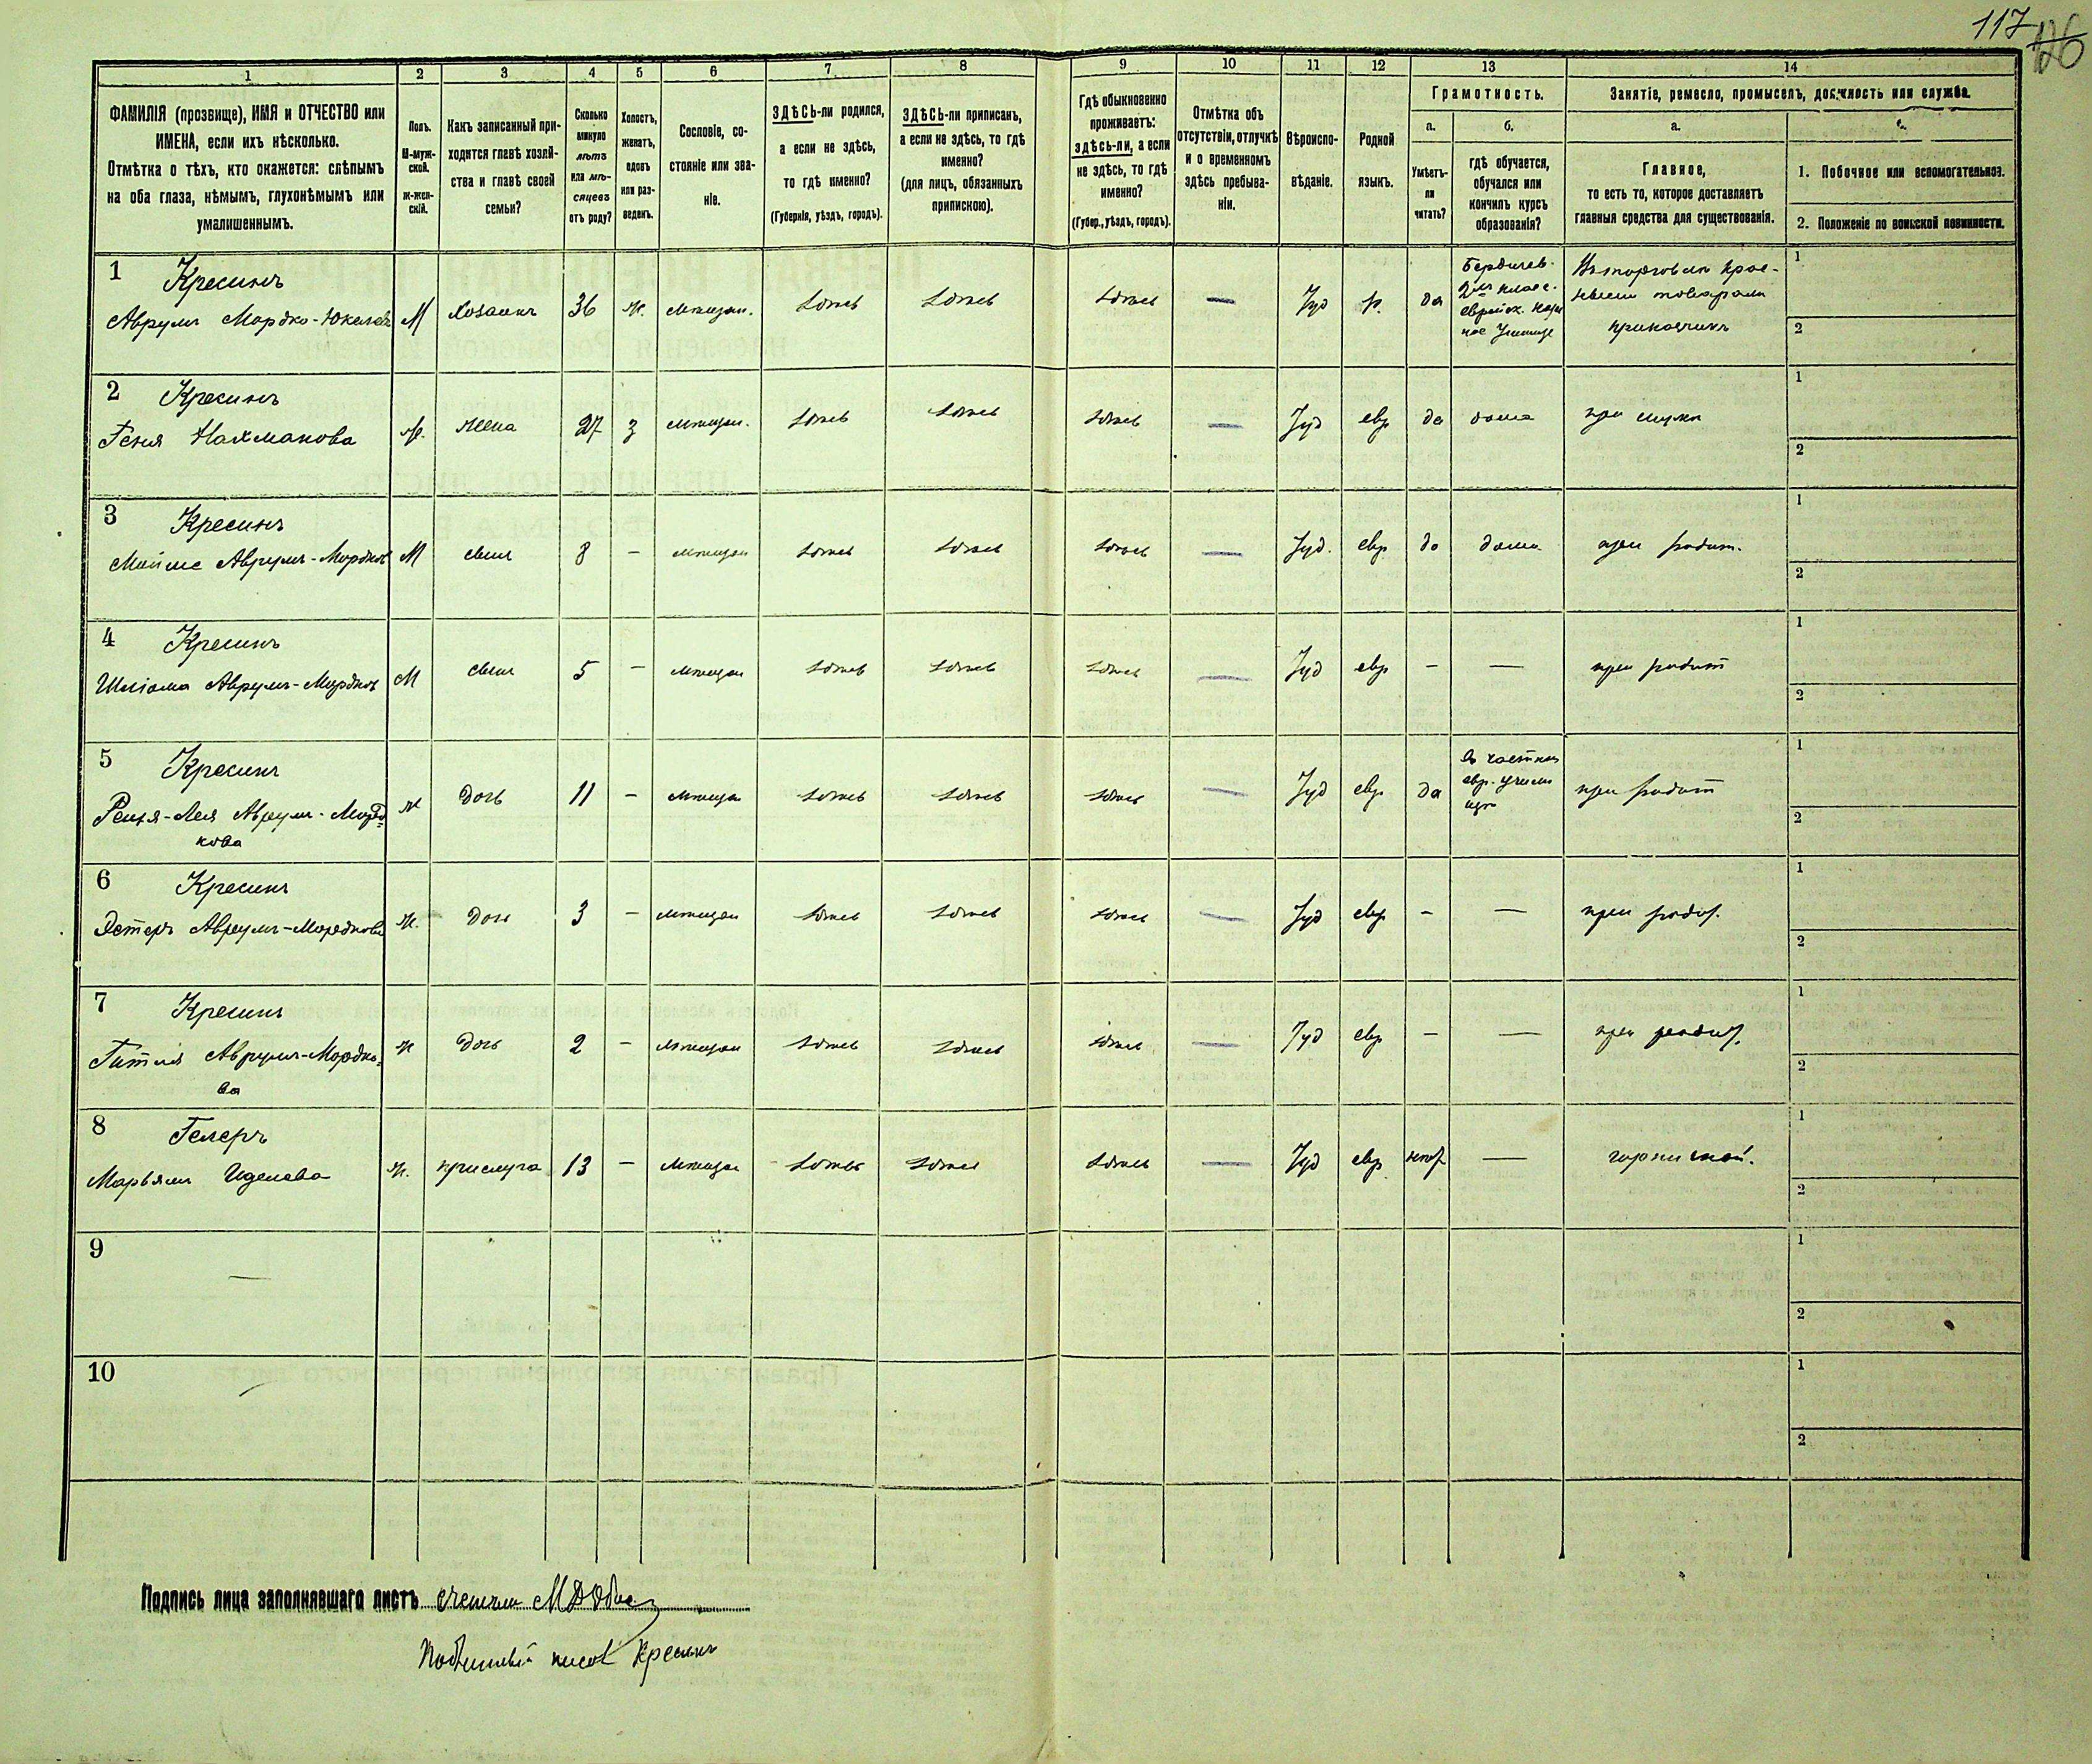 117
126
1 2 3 4 5 6 7 8 9 10 11 12 13 14
ФАМИЛІЯ (прозвище), ИМЯ и ОТЧЕСТВО или
ИМЕНА, если ихъ нѣсколько.
Отмѣтка о тѣхъ, кто окажется: слѣпымъ
на оба глаза, нѣмымъ, глухонѣмымъ или
умалишеннымъ.
Полъ.
М-муж-
ской.
Ж-жен-
скій.
Какъ записанный при-
ходится главѣ хозяй-
ства и главѣ своей
семьи?
Сколько
минуло
лѣтъ
или мѣ-
сяцевъ
отъ роду?
Холостъ,
женатъ,
вдовъ
или раз-
веденъ.
Сословіе, со-
стояніе или зва-
ніе.
ЗДѢСЬ-ли родился,
а если не здѣсь,
то гдѣ именно?
(Губернія, уѣздъ, городъ).
ЗДѢСЬ-ли приписанъ,
а если не здѣсь, то гдѣ
именно?
(для лицъ, обязанныхъ
припискою).
Гдѣ обыкновенно
проживаетъ:
здѣсь-ли, а если
не здѣсь, то гдѣ
именно?
(Губер., уѣздъ, городъ).
Отмѣтка объ
отсутствіи, отлучкѣ
и о временномъ
здѣсь пребыва-
ніи.
Вѣроиспо-
вѣданіе.
Родной
языкъ.
Грамотность.
а.
Умѣетъ-
ли
читать?
б.
гдѣ обучается,
обучался или
кончилъ курсъ
образованія?
Занятіе, ремесло, промыселъ, должность или служба.
а.
Главное,
то есть то, которое доставляетъ
главныя средства для существованія.
1. Побочное или вспомогательное.
2. Положеніе по воинской повинности.
1 Кресинъ
Аврумъ Мордко-Юкелевъ М Хозяинъ 36 ж. мѣщан. здѣсь здѣсь здѣсь — Iуд р. да
Бердичев.
2хъ класс.
еврейск.
Въ торговли крас-
ными товарами
прикащикъ
1
2
2 Кресинъ
Геня Нахманова ж. жена 27 з мѣщан. здѣсь здѣсь здѣсь — Iуд евр да дома при мужѣ
1
2
3 Кресинъ
Мойше Аврумъ-Мордковъ М сынъ 8 — мѣщан здѣсь здѣсь здѣсь — Iуд. евр да дома при родит.
1
2
4 Кресинъ
Шлiома Аврумъ-Мордковъ М сынъ 5 — мѣщан здѣсь здѣсь здѣсь — Iуд евр — — при родит
1
2
5 Кресинъ
Аврумъ-Морд=
кова
ж дочь 11 — мѣщан здѣсь здѣсь здѣсь — Iуд евр да
въ частном
евр. учили
щѣ
при родит
1
2
6 Кресинъ
Эстеръ Аврумъ-Мордкова ж. дочь 3 — мѣщан здѣсь здѣсь здѣсь — Iуд евр — — при родит.
1
2
7 Кресинъ
Гитля Аврумъ-Мордко=
ва
ж дочь 2 — мѣщан здѣсь здѣсь здѣсь — Iуд евр — — при родит.
1
2
8 Гелеръ
Марьямъ Иделева ж. прислуга 13 — мѣщан здѣсь здѣсь здѣсь — Iуд евр негр — горничной.
1
2
9 —
1
2
10 —
1
2
Подпись лица заполнявшаго листъ счетчик
Кресинъ